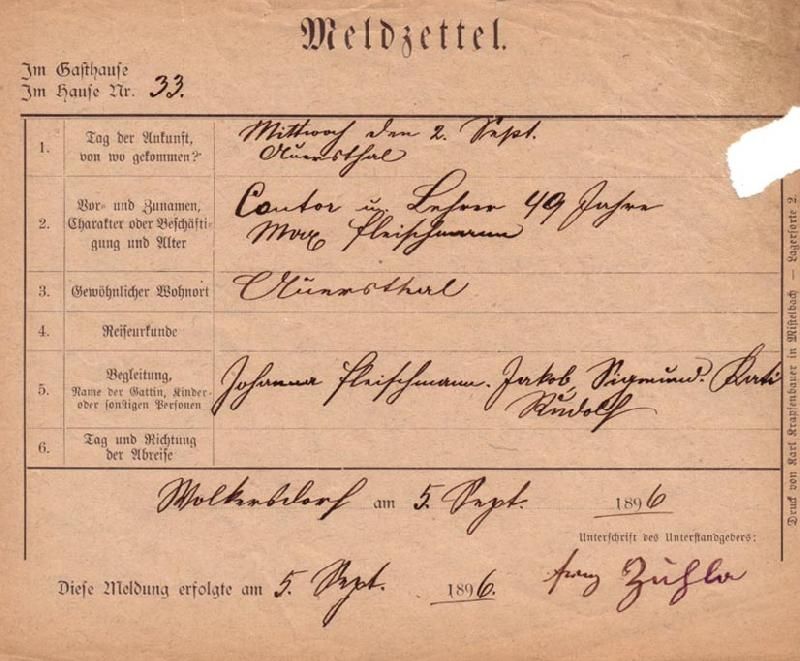 Meldzettel.
Im Gasthause
Im Hause Nr. 33.
1. Tag der Ankunft, von wo gekommen?
Mittwoch den 2. Sept.
Auersthal
2. Vor- und Zunamen, Charakter oder Beschäftigung und Alter
Cantor u. Lehrer 49 Jahre
Max Fleischmann
3. Gewöhnlicher Wohnort
Auersthal
4. Reiseurkunde
5. Begleitung,
Name der Gattin, Kinder- oder sonstigen Personen
Johanna Fleischmann. Jakob, Sigmund. Kati
Rudolf
6. Tag und Richtung der Abreise
Wolkersdorf am 5. Sept. 1896
Unterschrift des Unterstandgebers:
Diese Meldung erfolgte am 5. Sept. 1896.
Franz
Druck von Karl Krapfenbauer in Mistelbach — Lagersorte 2.